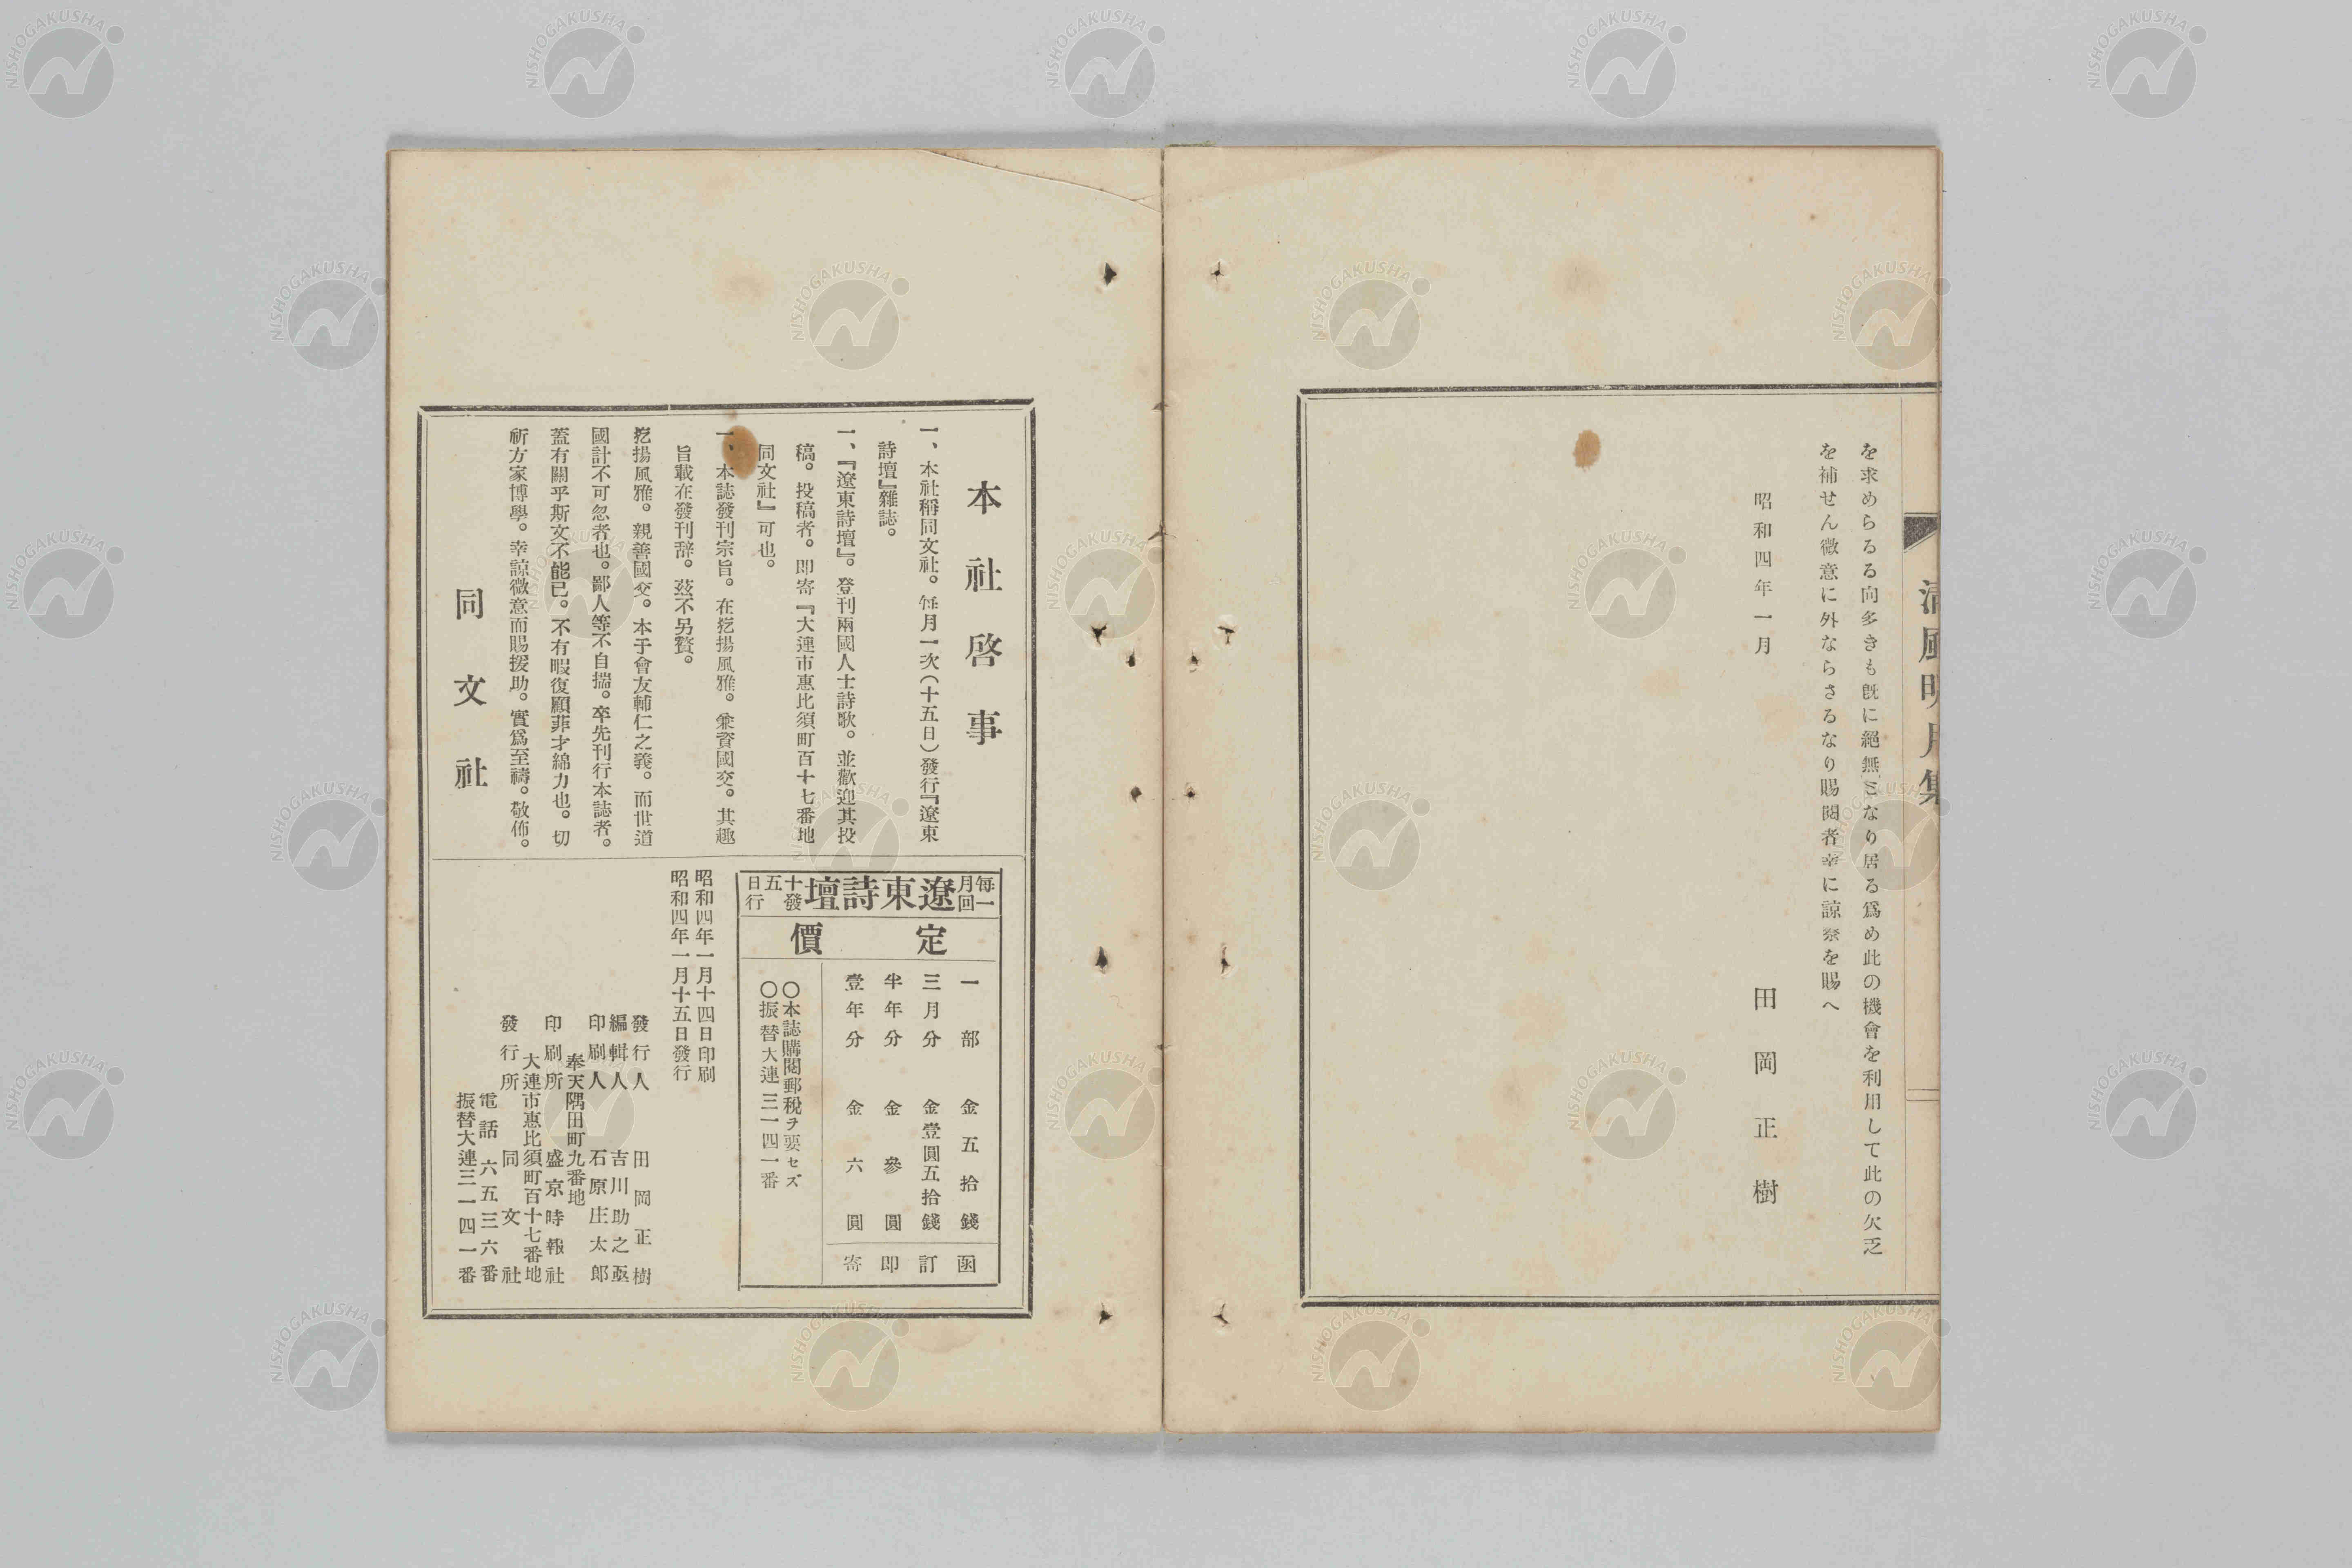 清風明月集
を求めらるる向多きも既に絕無となり居る爲め此の機會を利用して此の欠乏
を補せん微意に外ならさるなり賜閱者幸に諒察を賜へ
昭和四年一月
田岡正樹
本社啓事
一、本社稱同文社。每月一次(十五日)發行『遼東
詩壇』雜誌。
一、『遼東詩壇』。登刊兩國人士詩歌。並歡迎其投
稿。投稿者。卽寄『大連市惠比須町百十七番地
同文社』可也。
一、本誌發刊宗旨。在扢揚風雅。兼資國交。其趣
旨載在發刊辭。茲不另贅。
扢揚風雅。親善國交。本于會友輔仁之義。而世道
國計不可忽者也。鄙人等不自揣。卒先刊行本誌者。
蓋有關乎斯文不能已。不有暇復顧菲才綿力也。切
祈方家博學。幸諒微意而賜援助。實爲至禱。敬佈。
同文社
每月一回
遼東詩壇
十五日發行
定價
一部 金五拾錢
三月分 金壹圓五拾錢
半年分 金參圓
壹年分 金六圓
函訂卽寄
〇本誌購閱郵稅ヲ要セズ
〇振替大連三一四一番
昭和四年一月十四日印刷
昭和四年一月十五日發行
發行人 田岡正樹
編輯人 吉川助之亟
印刷人 石原庄太郎
奉天隅田町九番地
印刷所 盛京時報社
大連市惠比須町百十七番地
發行所 同文社
電話 六五三六番
振替大連三一四一番
NISHOGAKUSHA